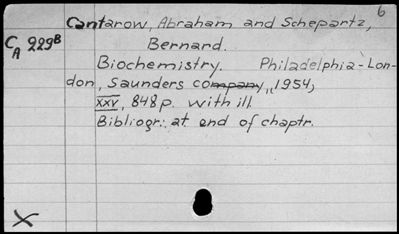 6
Cantarow, Abraham and Schepartz,
CA 229B Bernard.
Biochemistry. Philadelphia-Lon-
don, Saunders company, 1954,
xxv, 848 p. with ill.
Bibliogr.: at end of chaptr.
X